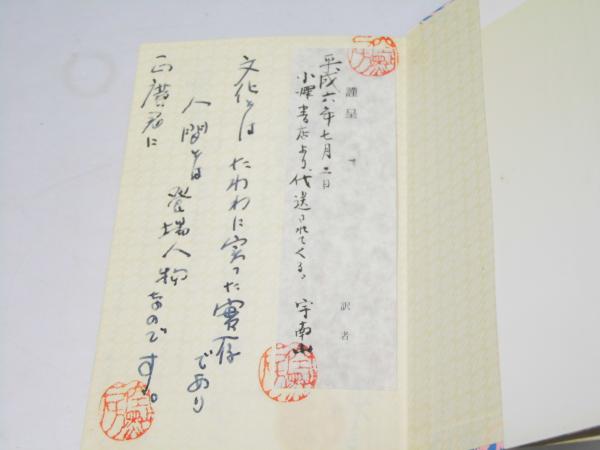 謹呈
訳者
平成六年七月二日
小澤書店より代送されてくる。
宇南山
文化とは たわわに実った實存
であり
人間とは 登場人物なのです。
正廣君に